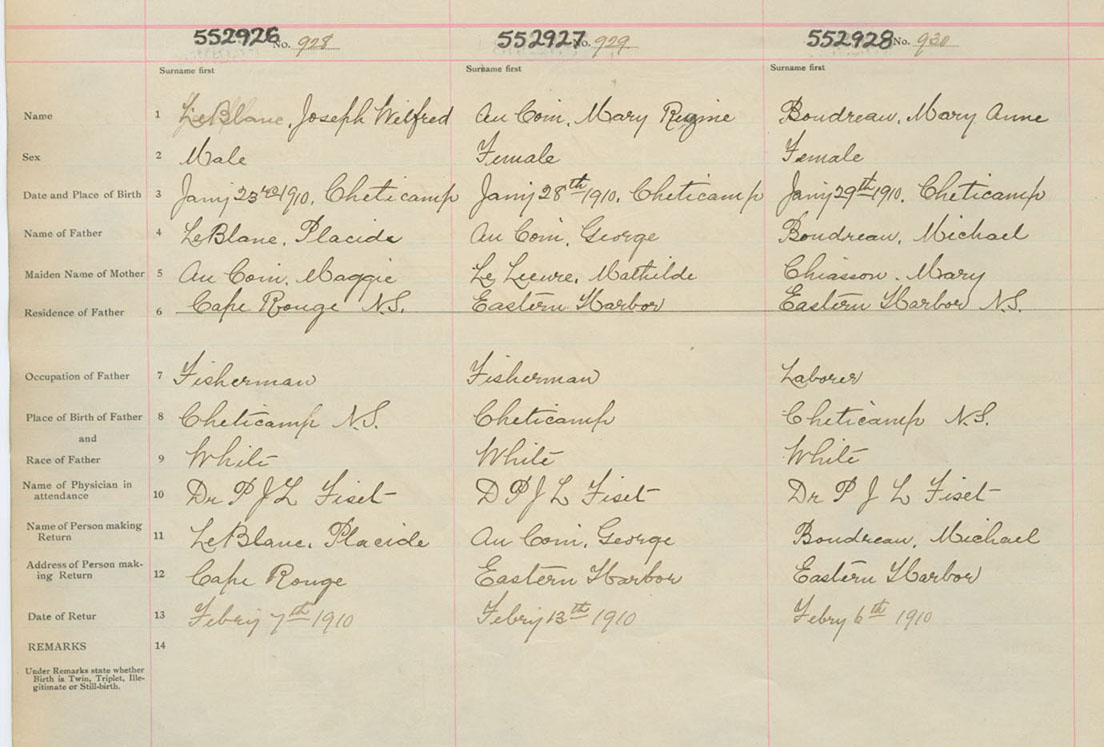 552926 No. 928 552927 No. 929 552928 No. 930
Surname first Surname first Surname first
Name 1 LeBlanc, Joseph Wilfred Au Coin, Mary Regine Boudreau, Mary Anne
Sex 2 Male Female Female
Date and Place of Birth 3 Jany 23rd 1910, Cheticamp Jany 28th 1910, Cheticamp Jany 29th 1910, Cheticamp
Name of Father 4 LeBlanc, Placide Au Coin, George Boudreau, Michael
Maiden Name of Mother 5 Au Coin, Maggie Le Lievre, Mathilde Chiasson, Mary
Residence of Father 6 Cape Rouge N.S. Eastern Harbor Eastern Harbor N.S.
Occupation of Father 7 Fisherman Fisherman Laborer
Place of Birth of Father 8 Cheticamp N.S. Cheticamp Cheticamp N.S.
and
Race of Father 9 White White White
Name of Physician in
attendance 10 Dr P J L Fiset D P J L Fiset Dr P J L Fiset
Name of Person making
Return 11 LeBlanc, Placide Au Coin, George Boudreau, Michael
Address of Person mak-
ing Return 12 Cape Rouge Eastern Harbor Eastern Harbor
Date of Retur 13 Febry 7th 1910 Febry 13th 1910 Febry 6th 1910
REMARKS 14
Under Remarks state whether
Birth is Twin, Triplet, Ille-
gitimate or Still-birth.